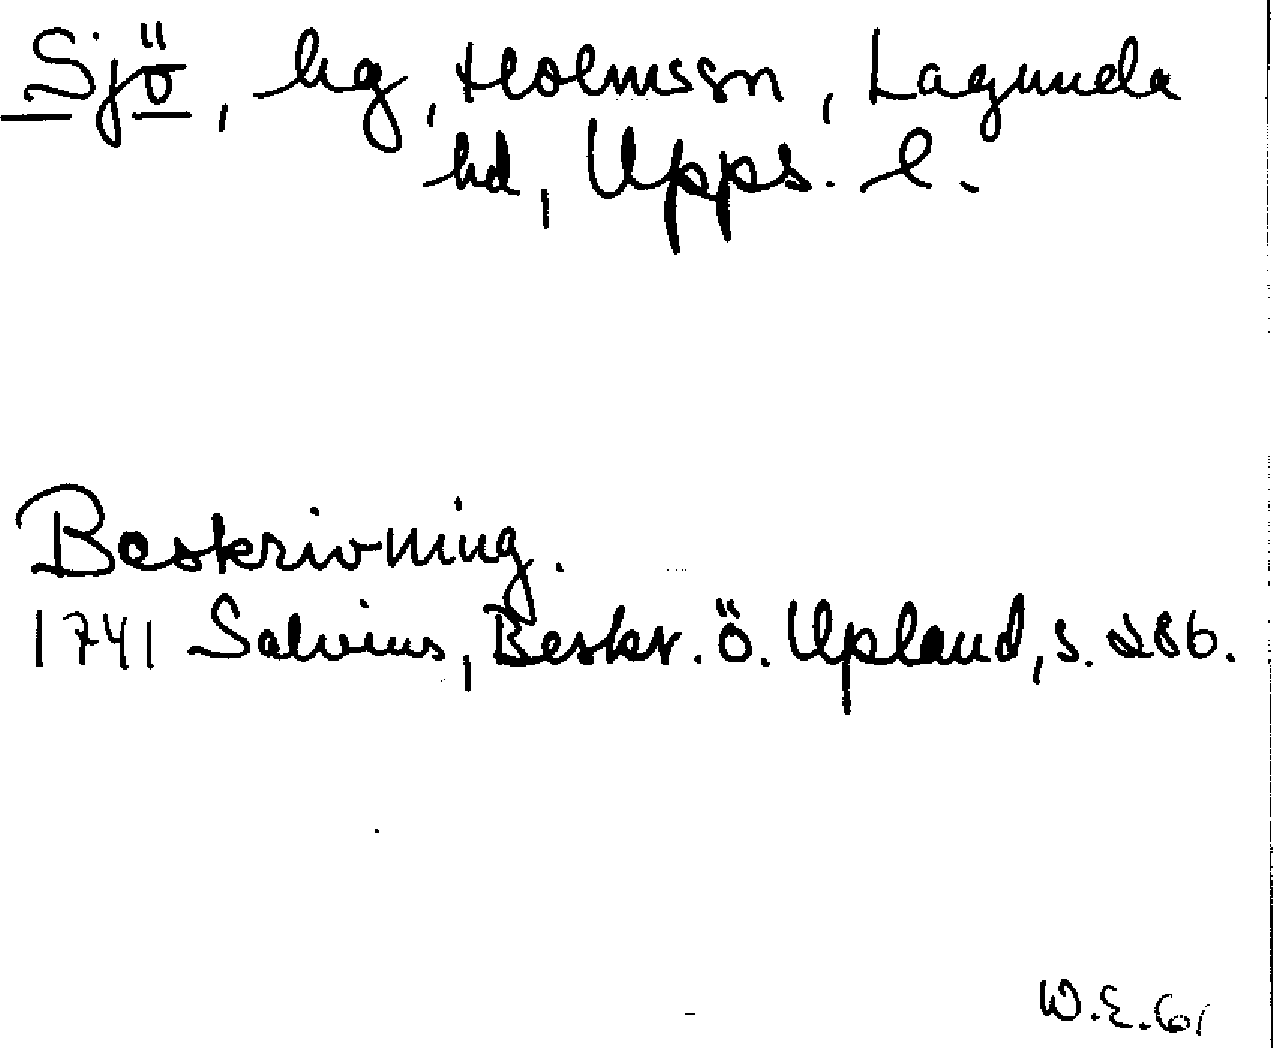 Sjö, hg, Holms sn, Lagunda
hd, Upps. l.
Beskrivning.
1741 Salvius, Beskr. ö. Upland, s. 286.
W.E.61